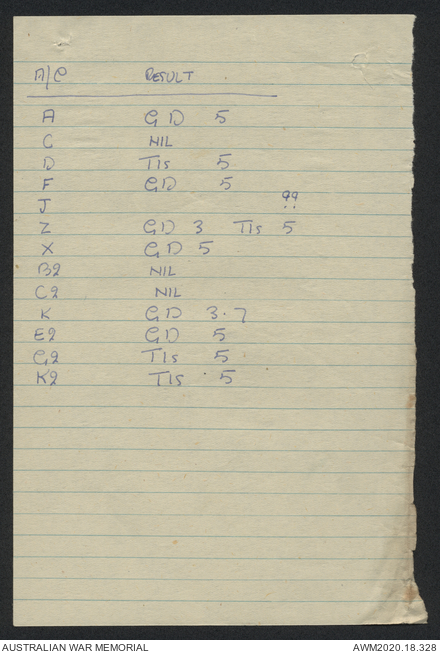 A/C RESULT
A GD 5
C NIL
D TIs 5
F GD 5
J ??
Z GD 3 TIs 5
X GD 5
B2 NIL
C2 NIL
K GD 3.7
E2 GD 5
G2 TIs 5
K2 TIs 5
AUSTRALIAN WAR MEMORIAL AWM2020.18.328